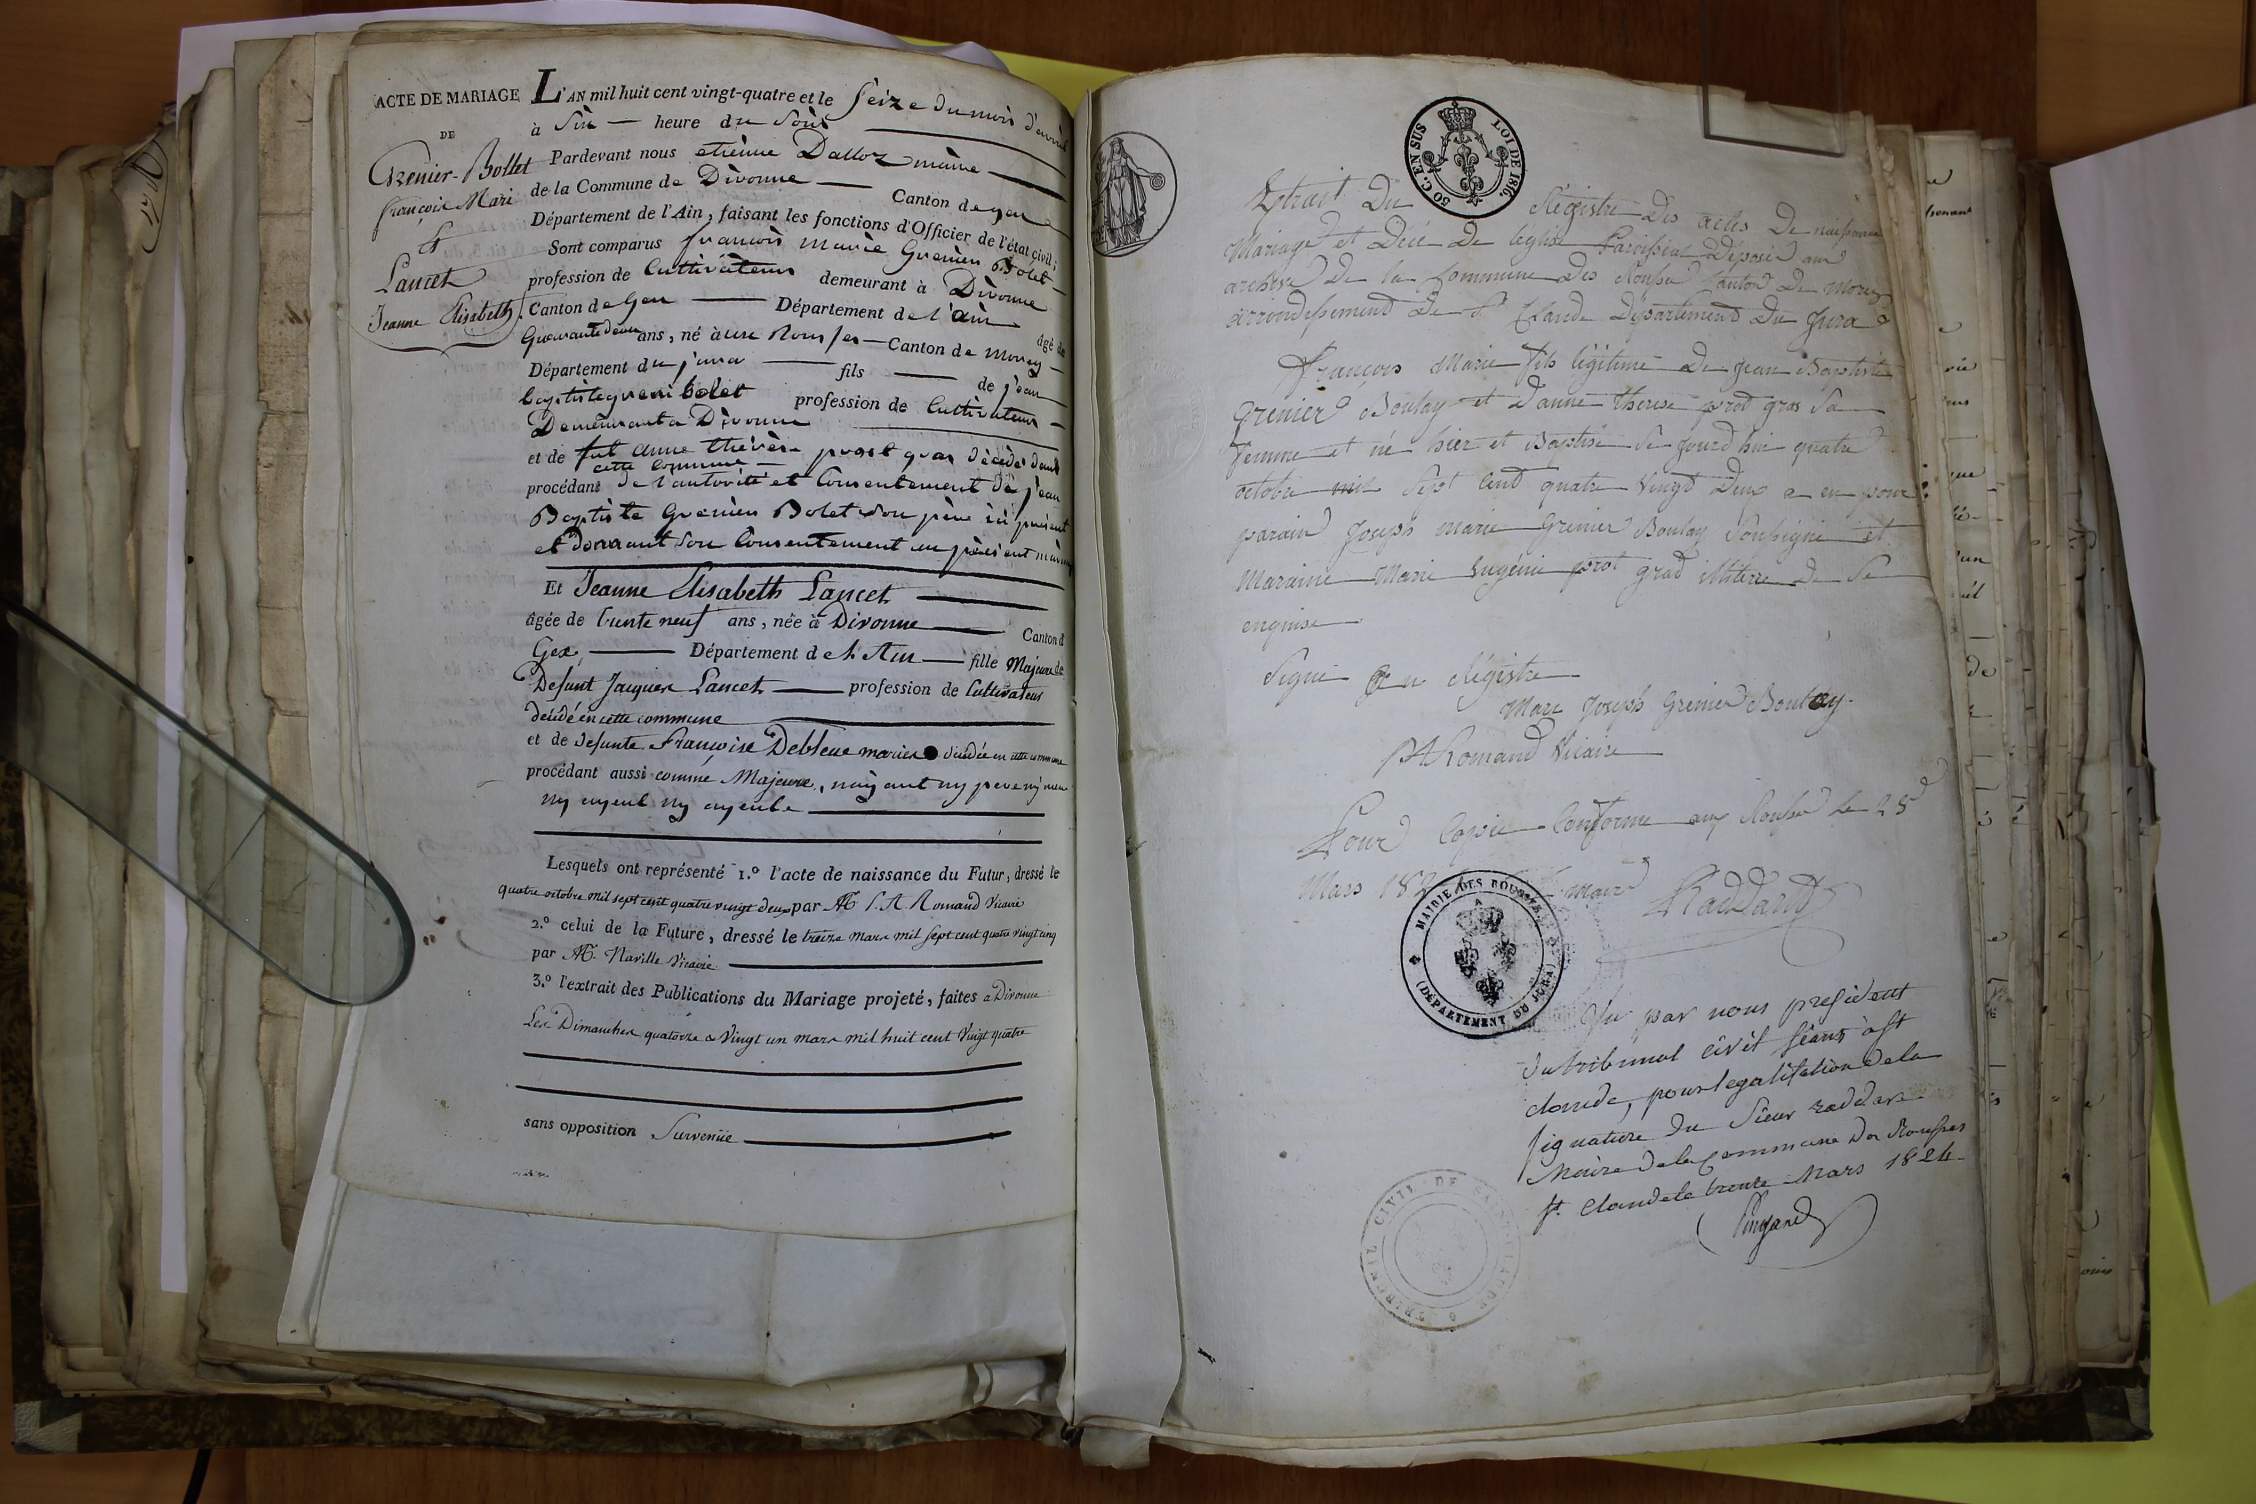 ACTE DE MARIAGE
DE
Grenier-Bollet
françois Mari
&
Lancet
Jeanne Elisabeth
L'AN mil huit cent vingt-quatre et le seize du mois d'avril
à Six heure du Soir
Pardevant nous etienne Dalloz maire
de la Commune de Divonne Canton de gex
Département de l'Ain, faisant les fonctions d'Officier de l'état civil;
Sont comparus francois marie Grenier Bolet
profession de Cultivateur demeurant à Divonne
Canton de Gex Département de l'ain âgé de
Quarante deux ans, né à les Rousses Canton de Morez
Département du jura fils de jean
baptiste greni bolet profession de Cultivateur
Demeurant a Divonne
et de fut anne thérèse prost gras décédés dans
cette commune
procédant de l'autorité et Consentement de jean
Baptiste Grenier Bolet son père ici présent
et donnant son Consentement au présent mariage
Et Jeanne Elisabeth Lancet
âgée de trente neuf ans, née à Divonne Canton d
Gex, Département de l'Ain fille Majeure de
Defunt Jacques Lancet profession de Cultivateur
décédé en cette commune
et de defunte Françoise Debleue mariés décédée en cette commune
procédant aussi comme Majeure, n'ayant ny pere ny mere
ny ayeul ny ayeule
Lesquels ont représenté 1.º l'acte de naissance du Futur, dressé le
quatre octobre mil sept cent quatre vingt deux par M. P. A. Romand Vicaire
2.º celui de la Future, dressé le treize mars mil sept cent quatre vingt cinq
par M. Naville Vicaire
3.º l'extrait des Publications du Mariage projeté, faites a Divonne
Les Dimanches quatorze & vingt un mars mil huit cent vingt quatre
sans opposition Survenüe
50 C. EN SUS LOI DE 1816.
Extrait Du Régistre des actes De naissance
Mariage et Décé De leglise Paroissial Déposée aux
archive De la Commune Des Rousse Canton De Morez
arrondissement De St Claude Département Du Jura
François Marie fils légitime de Jean Baptiste
Grenier Boulay et D'anne Therese prot gras Sa
femme et né hier et Baptisé Se Jourd'hui quatre
octobre mil Sept Cent quatre Vingt Deux a eu pour
parain Joseph Marie Grenier Boulay Soussigné et
Maraine Marie Eugénie prot grad illiterée De Se
enquise
Signé au Régistre
Marc Joseph Grenier Boulay.
PA Romand Vicaire
Pour Copie Conforme aux Rousse Le 28
Mars 182 maire Raddand
MAIRIE DES ROUSSES (DÉPARTEMENT DU JURA)
Vu par nous president
du tribunal civil séant à st
claude, pour legalisation de la
signature du Sieur raddand
Maire de la Commune des Rousses
st. Claude le trente Mars 1824
TRIBUNAL CIVIL DE SAINT CLAUDE